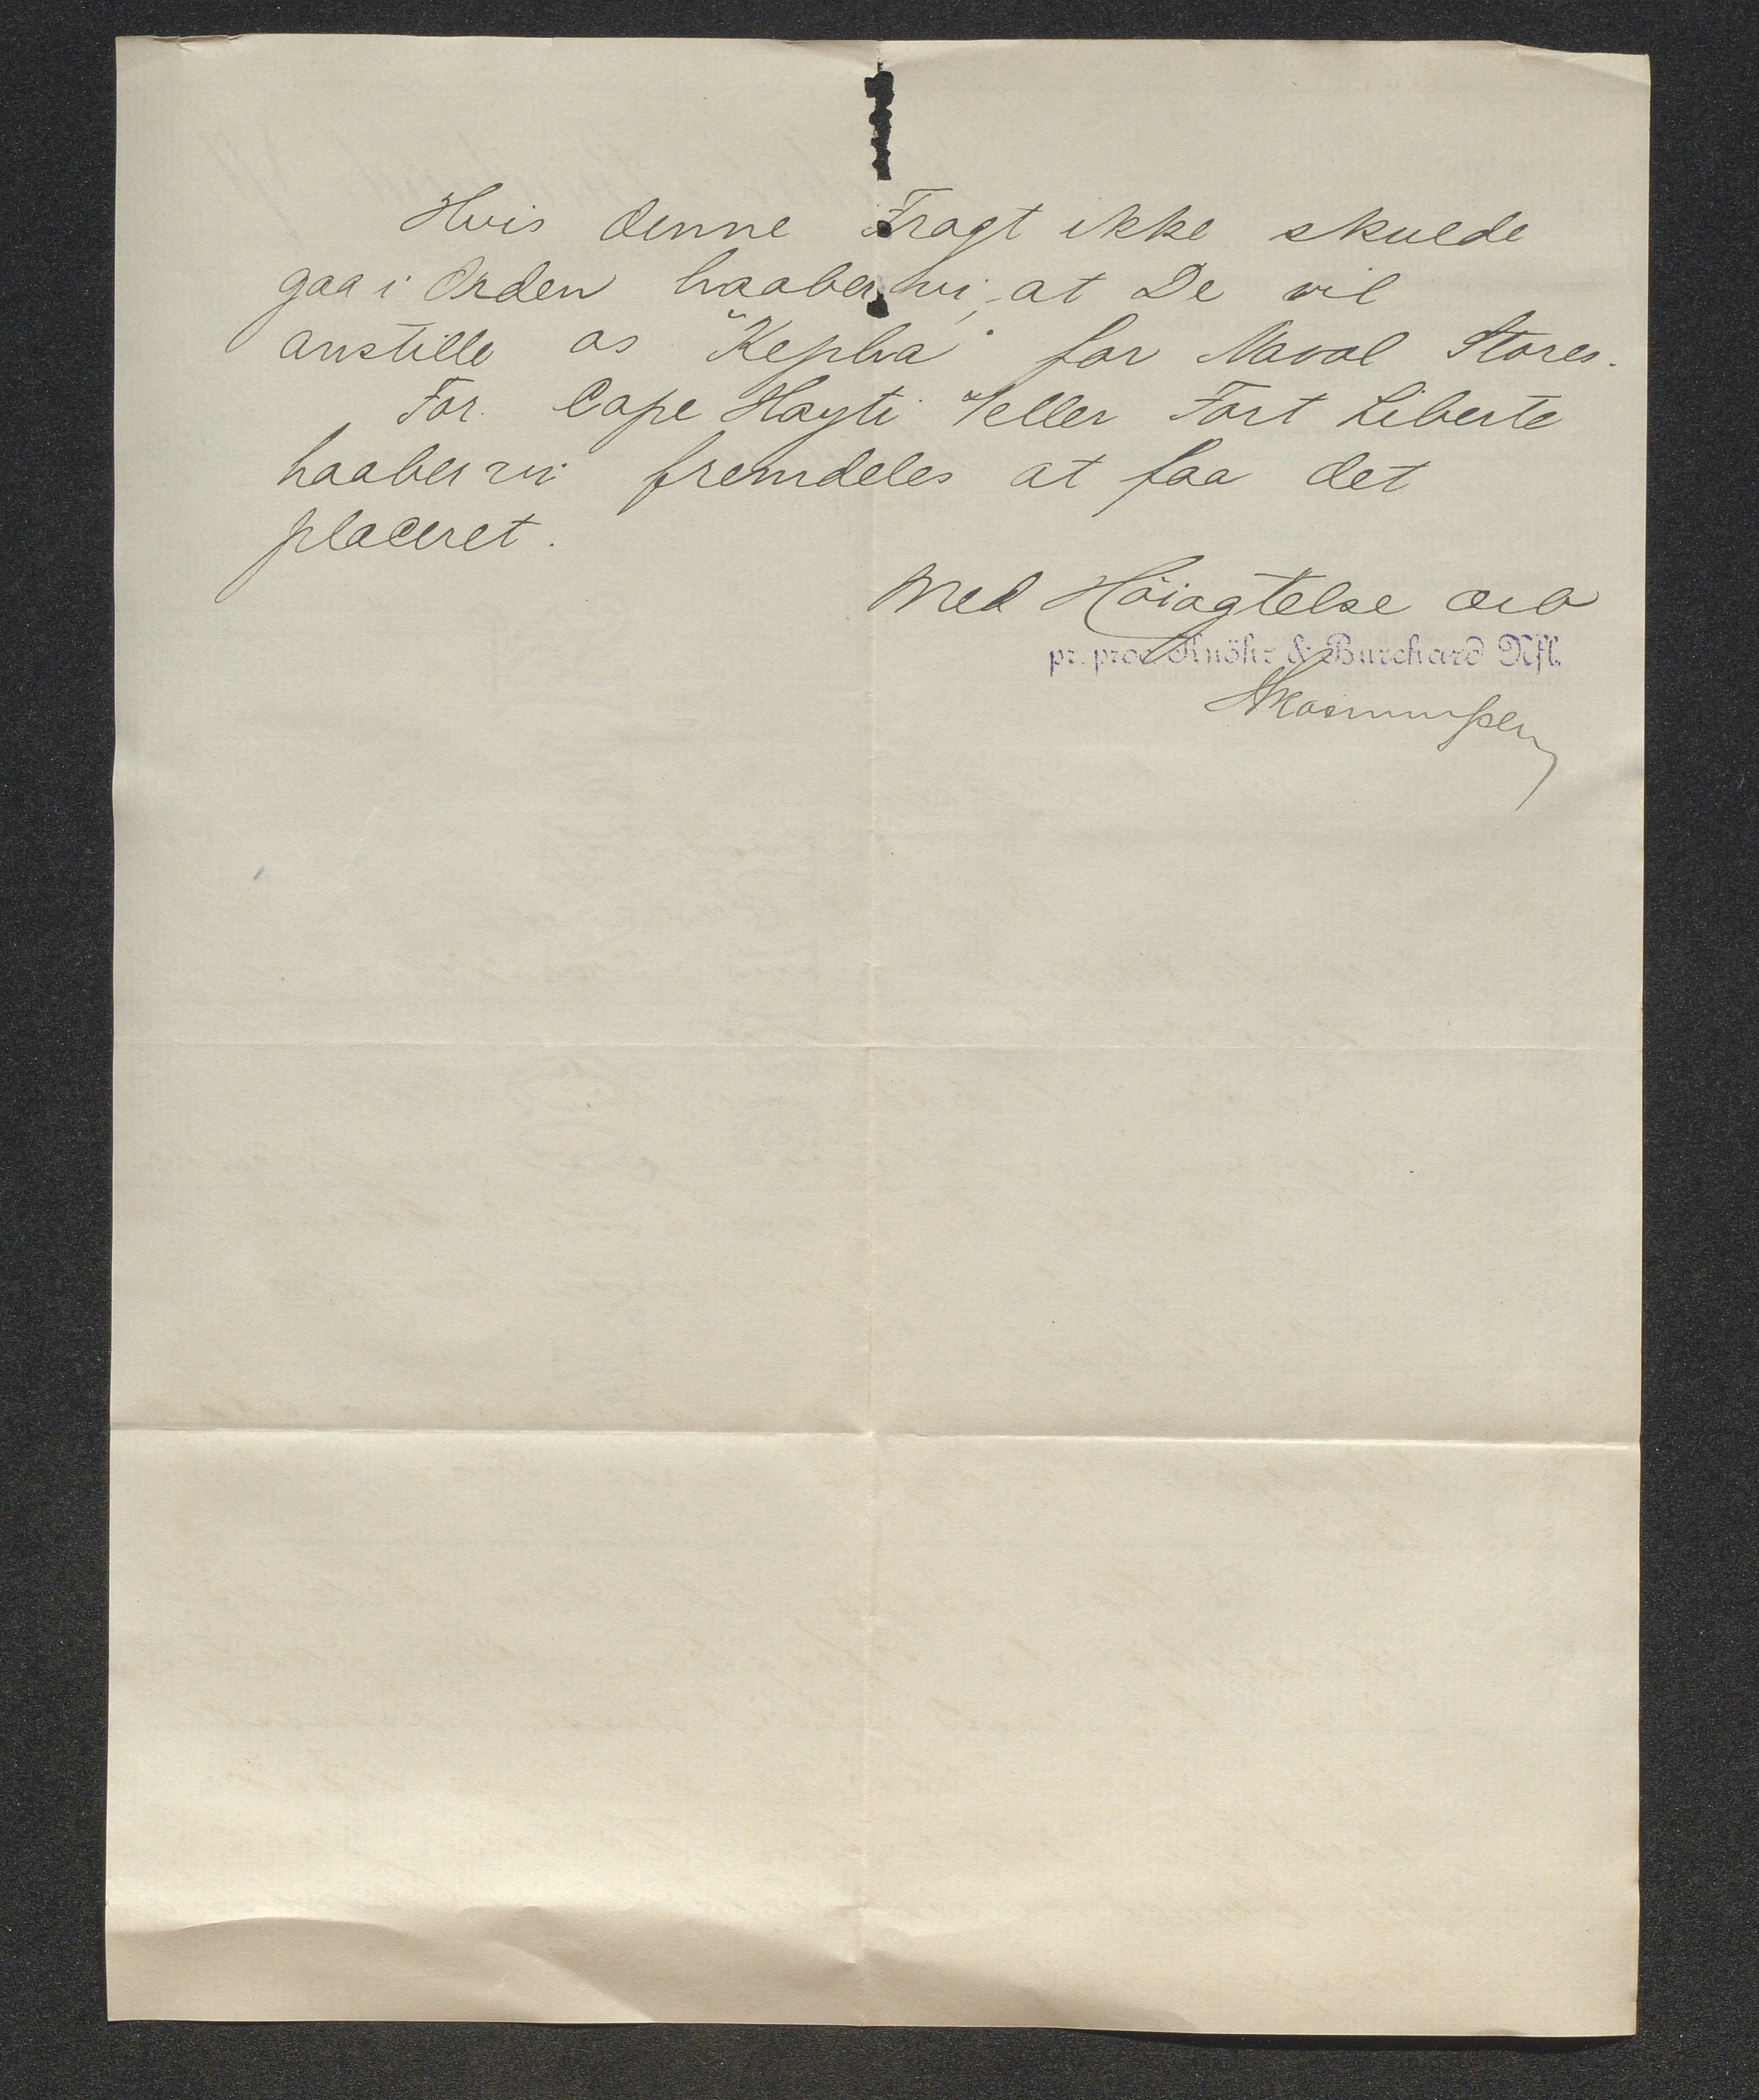 Hvis denne Fragt ikke skulde
gaa i Orden haaber vi, at De vil
anstille os "Kepha" for Naval Stores.
For Cape Hayti &/eller Fort Liberte
haaber vi fremdeles at faa det
placeret.
Med Höiagtelse
pr. proc Knöhr & Burchard Nfl.